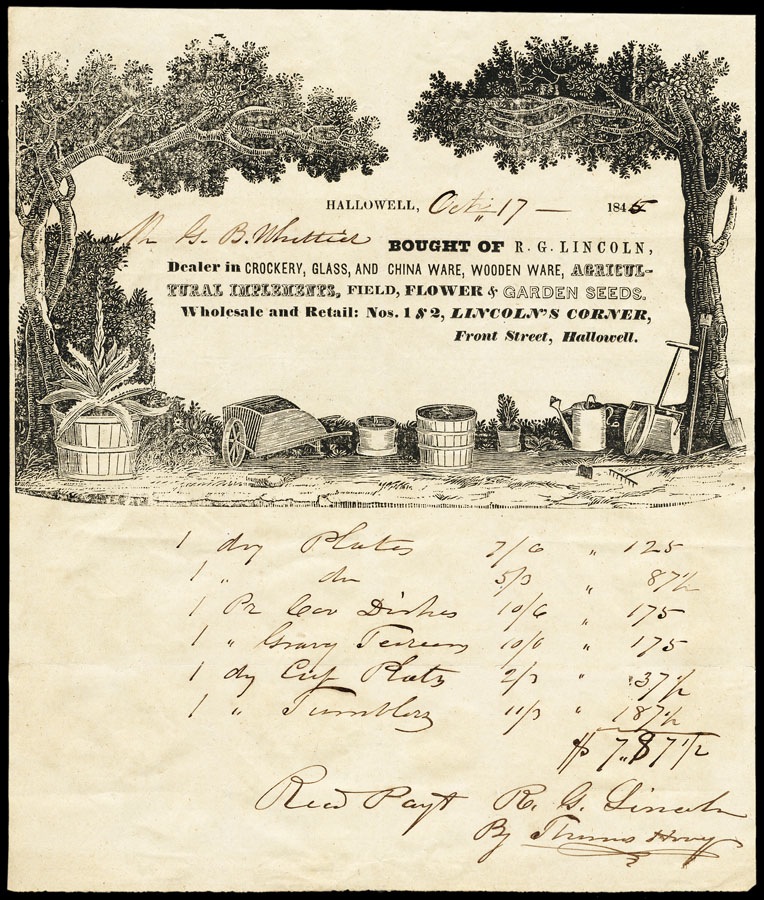 HALLOWELL, Oct. 17 — 1845
Mr G. B. Whittier BOUGHT OF R. G. LINCOLN,
Dealer in CROCKERY, GLASS, AND CHINA WARE, WOODEN WARE, AGRICUL-
TURAL IMPLEMENTS, FIELD, FLOWER & GARDEN SEEDS.
Wholesale and Retail: Nos. 1 & 2, LINCOLN'S CORNER,
Front Street, Hallowell.
1 doz Plates 7/6 " 125
1 " do 5/3 " 87½
1 Pr Cov Dishes 10/6 " 175
1 " Gravy Tureens 10/6 " 175
1 dz Cup Plats 2/3 " 37½
1 " Tumblers 11/3 " 187½
$ 7,87½
Recd Payt R. G. Lincoln
By Thomas Hovey